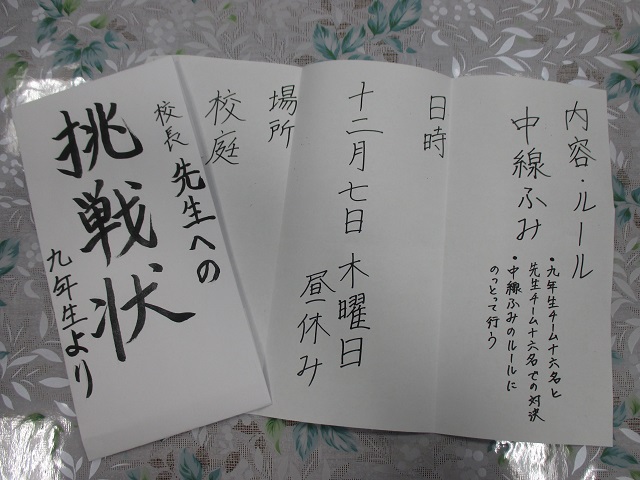 校長先生への
挑戦状
九年生より
内容・ルール
中線ふみ
・九年生チーム十六名と
先生チーム十六名での対決
・中線ふみのルールに
のっとって行う
日時
十二月七日 木曜日
昼休み
場所
校庭